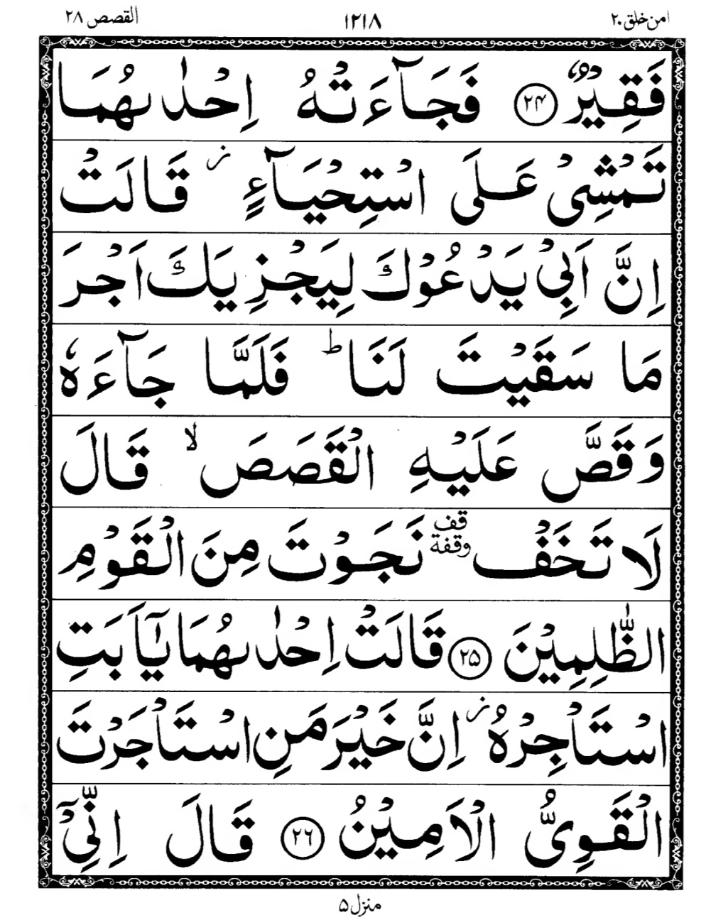 امن خلق ۲۰ ۱۲۱۸ القصص ۲۸
فَقِيْرٌ ﴿۲۴﴾ فَجَآءَتْهُ اِحْدٰىهُمَا
تَمْشِىْ عَلَى اسْتِحْيَآءٍ ؗ قَالَتْ
اِنَّ اَبِىْ يَدْعُوْكَ لِيَجْزِيَكَ اَجْرَ
مَا سَقَيْتَ لَنَا ؕ فَلَمَّا جَآءَهٗ
وَقَصَّ عَلَيْهِ الْقَصَصَ ۙ قَالَ
لَا تَخَفْ قف وقفة نَجَوْتَ مِنَ الْقَوْمِ
الظّٰلِمِيْنَ ﴿۲۵﴾ قَالَتْ اِحْدٰىهُمَا يٰۤاَبَتِ
اسْتَاْجِرْهُ ؗ اِنَّ خَيْرَ مَنِ اسْتَاْجَرْتَ
الْقَوِىُّ الْاَمِيْنُ ﴿۲۶﴾ قَالَ اِنِّىْۤ
منزل ۵